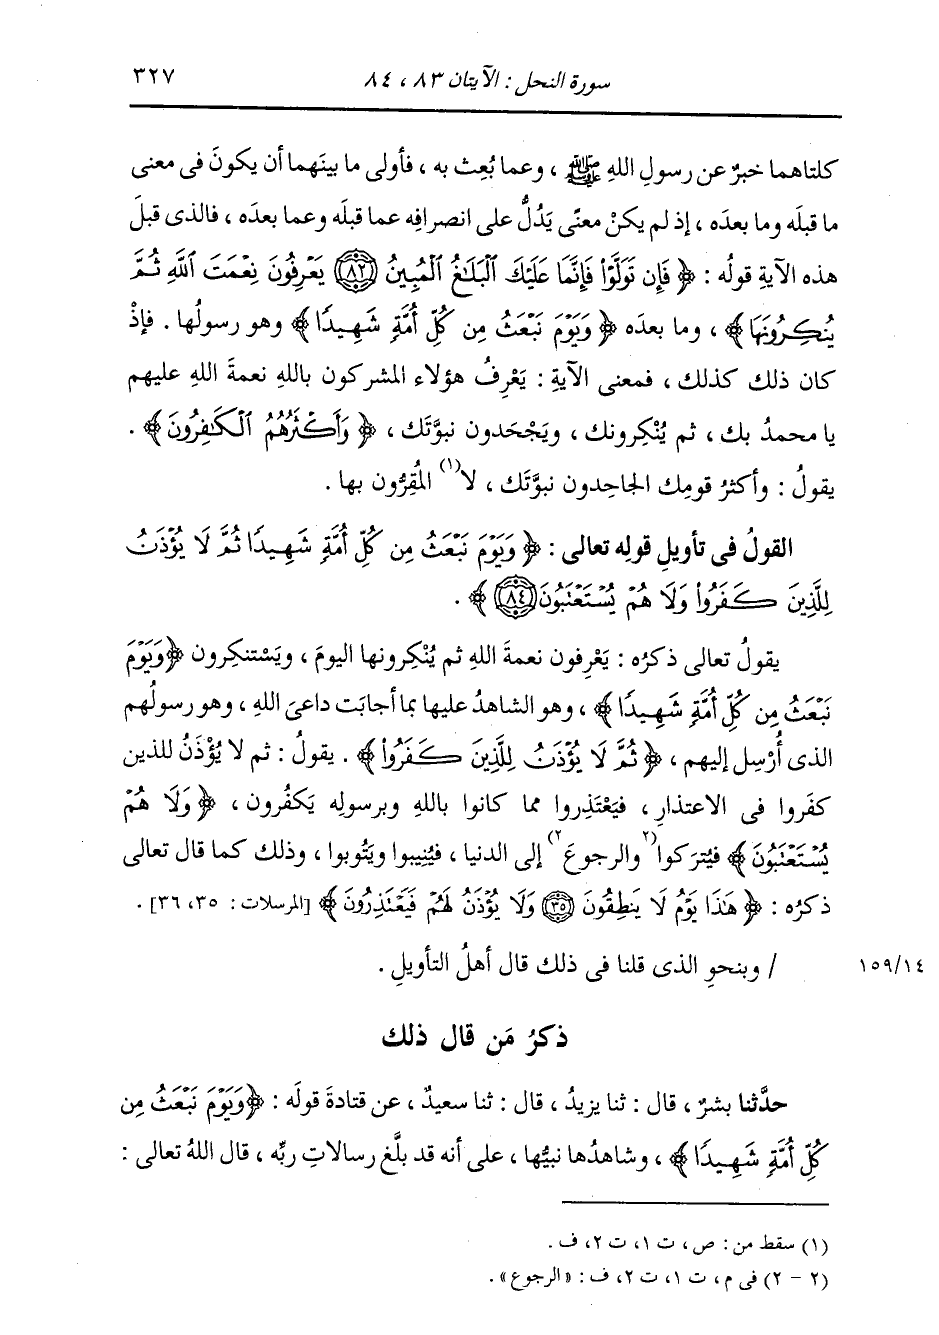 سورة النحل : الآيتان ٨٣ ، ٨٤ ٣٢٧
كلتاهما خبرٌ عن رسولِ اللهِ ﷺ ، وعما بُعِث به ، فأولى ما بينَهما أن يكونَ فى معنى
ما قبلَه وما بعدَه ، إذ لم يكنْ معنًى يَدُلُّ على انصرافِه عما قبلَه وعما بعدَه ، فالذى قبلَ
هذه الآيةِ قولُه : ﴿ فَإِن تَوَلَّوْا۟ فَإِنَّمَا عَلَيْكَ ٱلْبَلَٰغُ ٱلْمُبِينُ ٨٢ يَعْرِفُونَ نِعْمَتَ ٱللَّهِ ثُمَّ
يُنكِرُونَهَا ﴾ ، وما بعده ﴿ وَيَوْمَ نَبْعَثُ مِن كُلِّ أُمَّةٍ شَهِيدًا ﴾ وهو رسولُها . فإذْ
كان ذلك كذلك ، فمعنى الآيةِ : يَعْرِفُ هؤلاء المشركون باللهِ نعمةَ اللهِ عليهم
يا محمدُ بك ، ثم يُنْكِرونك ، ويَجْحَدون نبوَّتَك ، ﴿ وَأَكْثَرُهُمُ ٱلْكَٰفِرُونَ ﴾ .
يقولُ : وأكثرُ قومِك الجاحدون نبوَّتَك ، لا(١) المُقِرُّون بها .
القولُ فى تأويلِ قولِه تعالى : ﴿ وَيَوْمَ نَبْعَثُ مِن كُلِّ أُمَّةٍ شَهِيدًا ثُمَّ لَا يُؤْذَنُ
لِلَّذِينَ كَفَرُوا۟ وَلَا هُمْ يُسْتَعْتَبُونَ ٨٤ ﴾ .
يقولُ تعالى ذكرُه : يَعْرِفون نعمةَ اللهِ ثم يُنْكِرونها اليومَ ، ويَسْتنكِرون ﴿ وَيَوْمَ
نَبْعَثُ مِن كُلِّ أُمَّةٍ شَهِيدًا ﴾ ، وهو الشاهدُ عليها بما أجابَت داعىَ اللهِ ، وهو رسولُهم
الذى أُرْسِل إليهم ، ﴿ ثُمَّ لَا يُؤْذَنُ لِلَّذِينَ كَفَرُوا۟ ﴾ . يقولُ : ثم لا يُؤْذَنُ للذين
كفَروا فى الاعتذارِ ، فيَعْتَذِروا مما كانوا باللهِ وبرسولِه يَكفُرون ، ﴿ وَلَا هُمْ
يُسْتَعْتَبُونَ ﴾ فيُتركوا(٢ والرجوعَ ٢) إلى الدنيا ، فيُنِيبوا ويَتُوبوا ، وذلك كما قال تعالى
ذكرُه : ﴿ هَٰذَا يَوْمُ لَا يَنطِقُونَ ٣٥ وَلَا يُؤْذَنُ لَهُمْ فَيَعْتَذِرُونَ ﴾ [المرسلات : ٣٥، ٣٦] .
/ وبنحوِ الذى قلنا فى ذلك قال أهلُ التأويلِ . ١٥٩/١٤
ذكرُ مَن قال ذلك
حدَّثنا بشرٌ ، قال : ثنا يزيدُ ، قال : ثنا سعيدٌ ، عن قتادةَ قولَه : ﴿ وَيَوْمَ نَبْعَثُ مِن
كُلِّ أُمَّةٍ شَهِيدًا ﴾ ، وشاهدُها نبيُّها ، على أنه قد بلَّغ رسالاتِ ربِّه ، قال اللهُ تعالى :
(١) سقط من : ص ، ت ١ ، ت ٢ ، ف .
(٢ - ٢) فى م ، ت ١ ، ت ٢ ، ف : «الرجوع» .